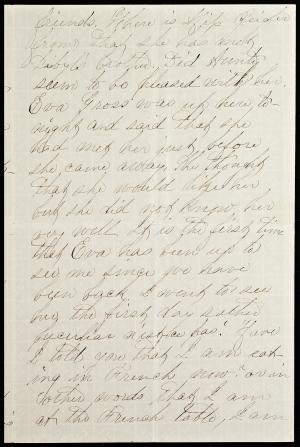 friends. Where is Miss
from that she has met
brother. Did Aunty
seem to be pleased with her.
Eva Gross was up here to-
night and said that she
had met her just before
she came away. She thought
that she would like her
but she did not know her
very well. It is the first time
that Eva has been up to
see me since we have
been back. I went to see
her the first day rather
peculiar n'est-ce pas? Have
I told you that I am eat-
ing in French now? or in
other words, that I am
at the French table, I am